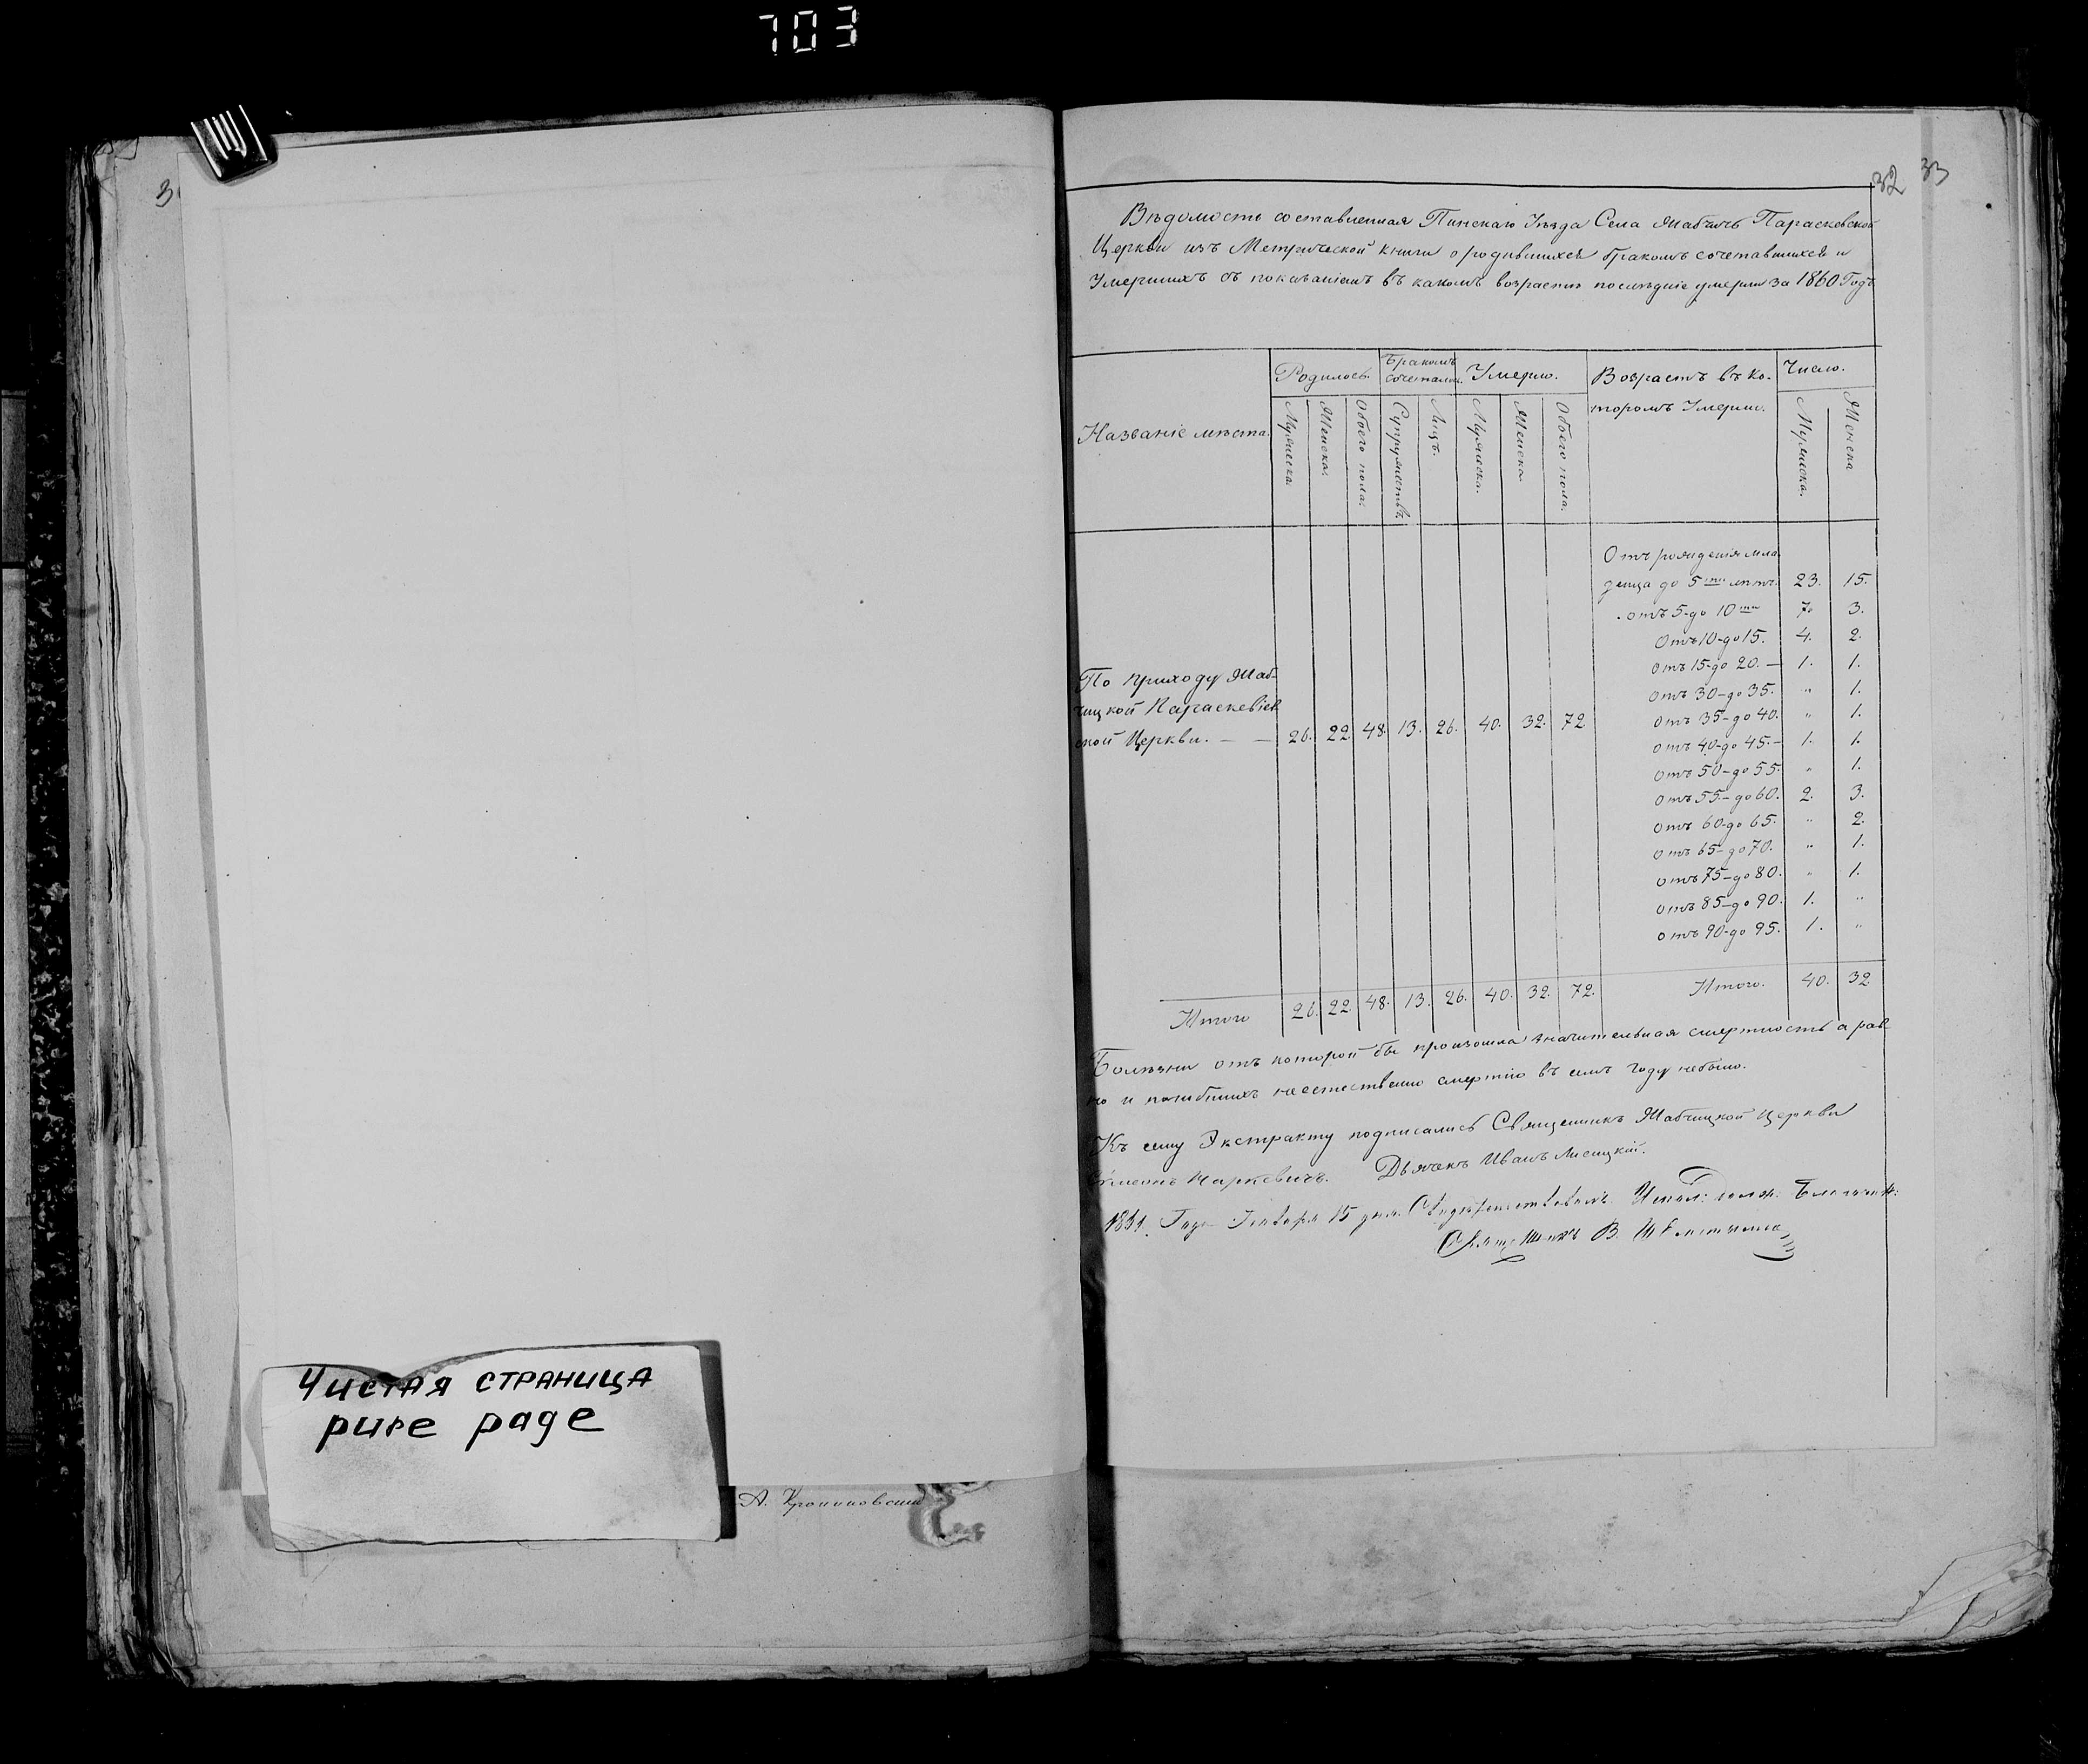 703
32 33
Вѣдомость составленная Пинскаго Уѣзда Села Жабчичъ Параскевской
Церкви изъ Метрической книги о родившихся бракомъ сочетавшихся и
Умершихъ съ показаніемъ въ какомъ возрастѣ послѣдніе умерли за 1860 Годъ
Названіе мѣста. Родилось. Бракомъ сочетались. Умерло. Возрастъ въ ко- Число.
торомъ Умерли.
Мужеска. Женска. Обоего пола. Супружествъ. Лицъ. Мужеска. Женска. Обоего пола. Мужеска. Женска
Отъ рожденія мла
денца до 5ти лѣтъ. 23. 15.
отъ 5-до 10ти 7. 3.
Отъ 10-до 15. 4. 2.
отъ 15-до 20. — 1. 1.
отъ 30-до 35. „ 1.
отъ 35-до 40. „ 1.
отъ 40-до 45.- 1. 1.
отъ 50-до 55. „ 1.
отъ 55-до 60. 2. 3.
отъ 60-до 65. „ 2.
отъ 65-до 70. „ 1.
отъ 75-до 80. „ 1.
отъ 85-до 90. 1. „
отъ 90-до 95. 1. „
По приходу Жаб-
чицкой Параскевіев
ской Церкви. — — 26. 22. 48. 13. 26. 40. 32. 72
Итого 26. 22. 48. 13. 26. 40. 32. 72. Итого. 40. 32
Болѣзни отъ которой бы произошла значительная смертность а рав
но и погибшихъ неестественно смертію въ семъ году небыло.
Къ сему Экстракту подписались Священникъ Жабчицкой Церкви
Симеонъ Маркевичъ. Дьячекъ Иванъ Лисицкій.
Года Января 15 дня. Свидѣтельствовалъ Исправ: должн. Благочин:
Священникъ В.
Чистая страница
pure page
А. Кропиковский